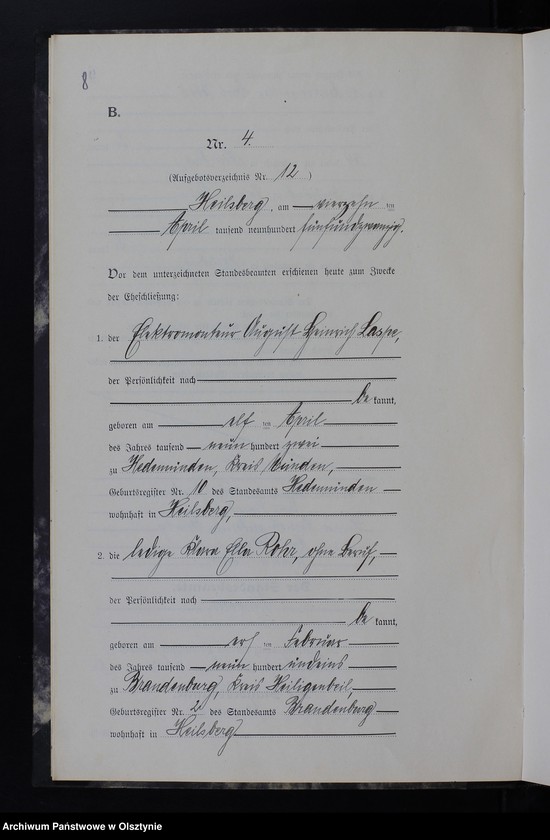 8
B.
Nr. 4.
(Aufgebotsverzeichnis Nr. 12)
Heilsberg, am vierzehn ten
April tausend neunhundert fünfundzwanzig.
Vor dem unterzeichneten Standesbeamten erschienen heute zum Zwecke
der Eheschließung:
1. der Elektromonteur August Heinrich Laspe,
der Persönlichkeit nach
be kannt,
geboren am elf ten April
des Jahres tausend neun hundert zwei
zu Hedemünden, Kreis Münden,
Geburtsregister Nr. 10 des Standesamts Hedemünden
wohnhaft in Heilsberg,
2. die ledige Klara Ella Rohr, ohne Beruf,
der Persönlichkeit nach
be kannt,
geboren am ten Februar
des Jahres tausend neun hundert undeins
zu Brandenburg, Kreis Heiligenbeil,
Geburtsregister Nr. des Standesamts Brandenburg
wohnhaft in Heilsberg
Archiwum Państwowe w Olsztynie